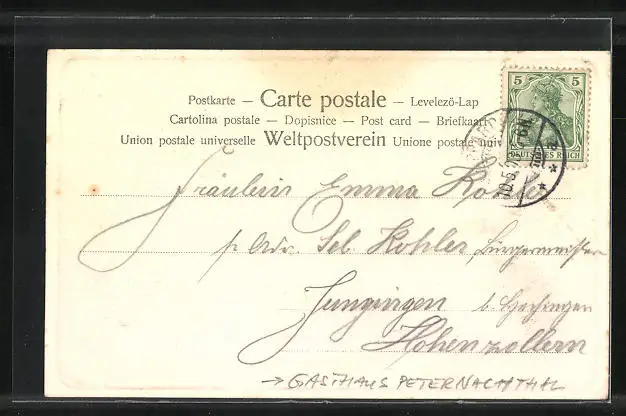 Postkarte – Carte postale – Levelező-Lap
Cartolina postale – Dopisnice – Post card – Briefkaart
Union postale universelle Weltpostverein Unione postale univ
5 5
DEUTSCHES REICH
10.5.
Fräulein Emma Kohler
p. Adr. Seb. Kohler, Bürgermeister
Jungingen b. Hechingen
Hohenzollern
→ GASTHAUS PETERNACHTHAL